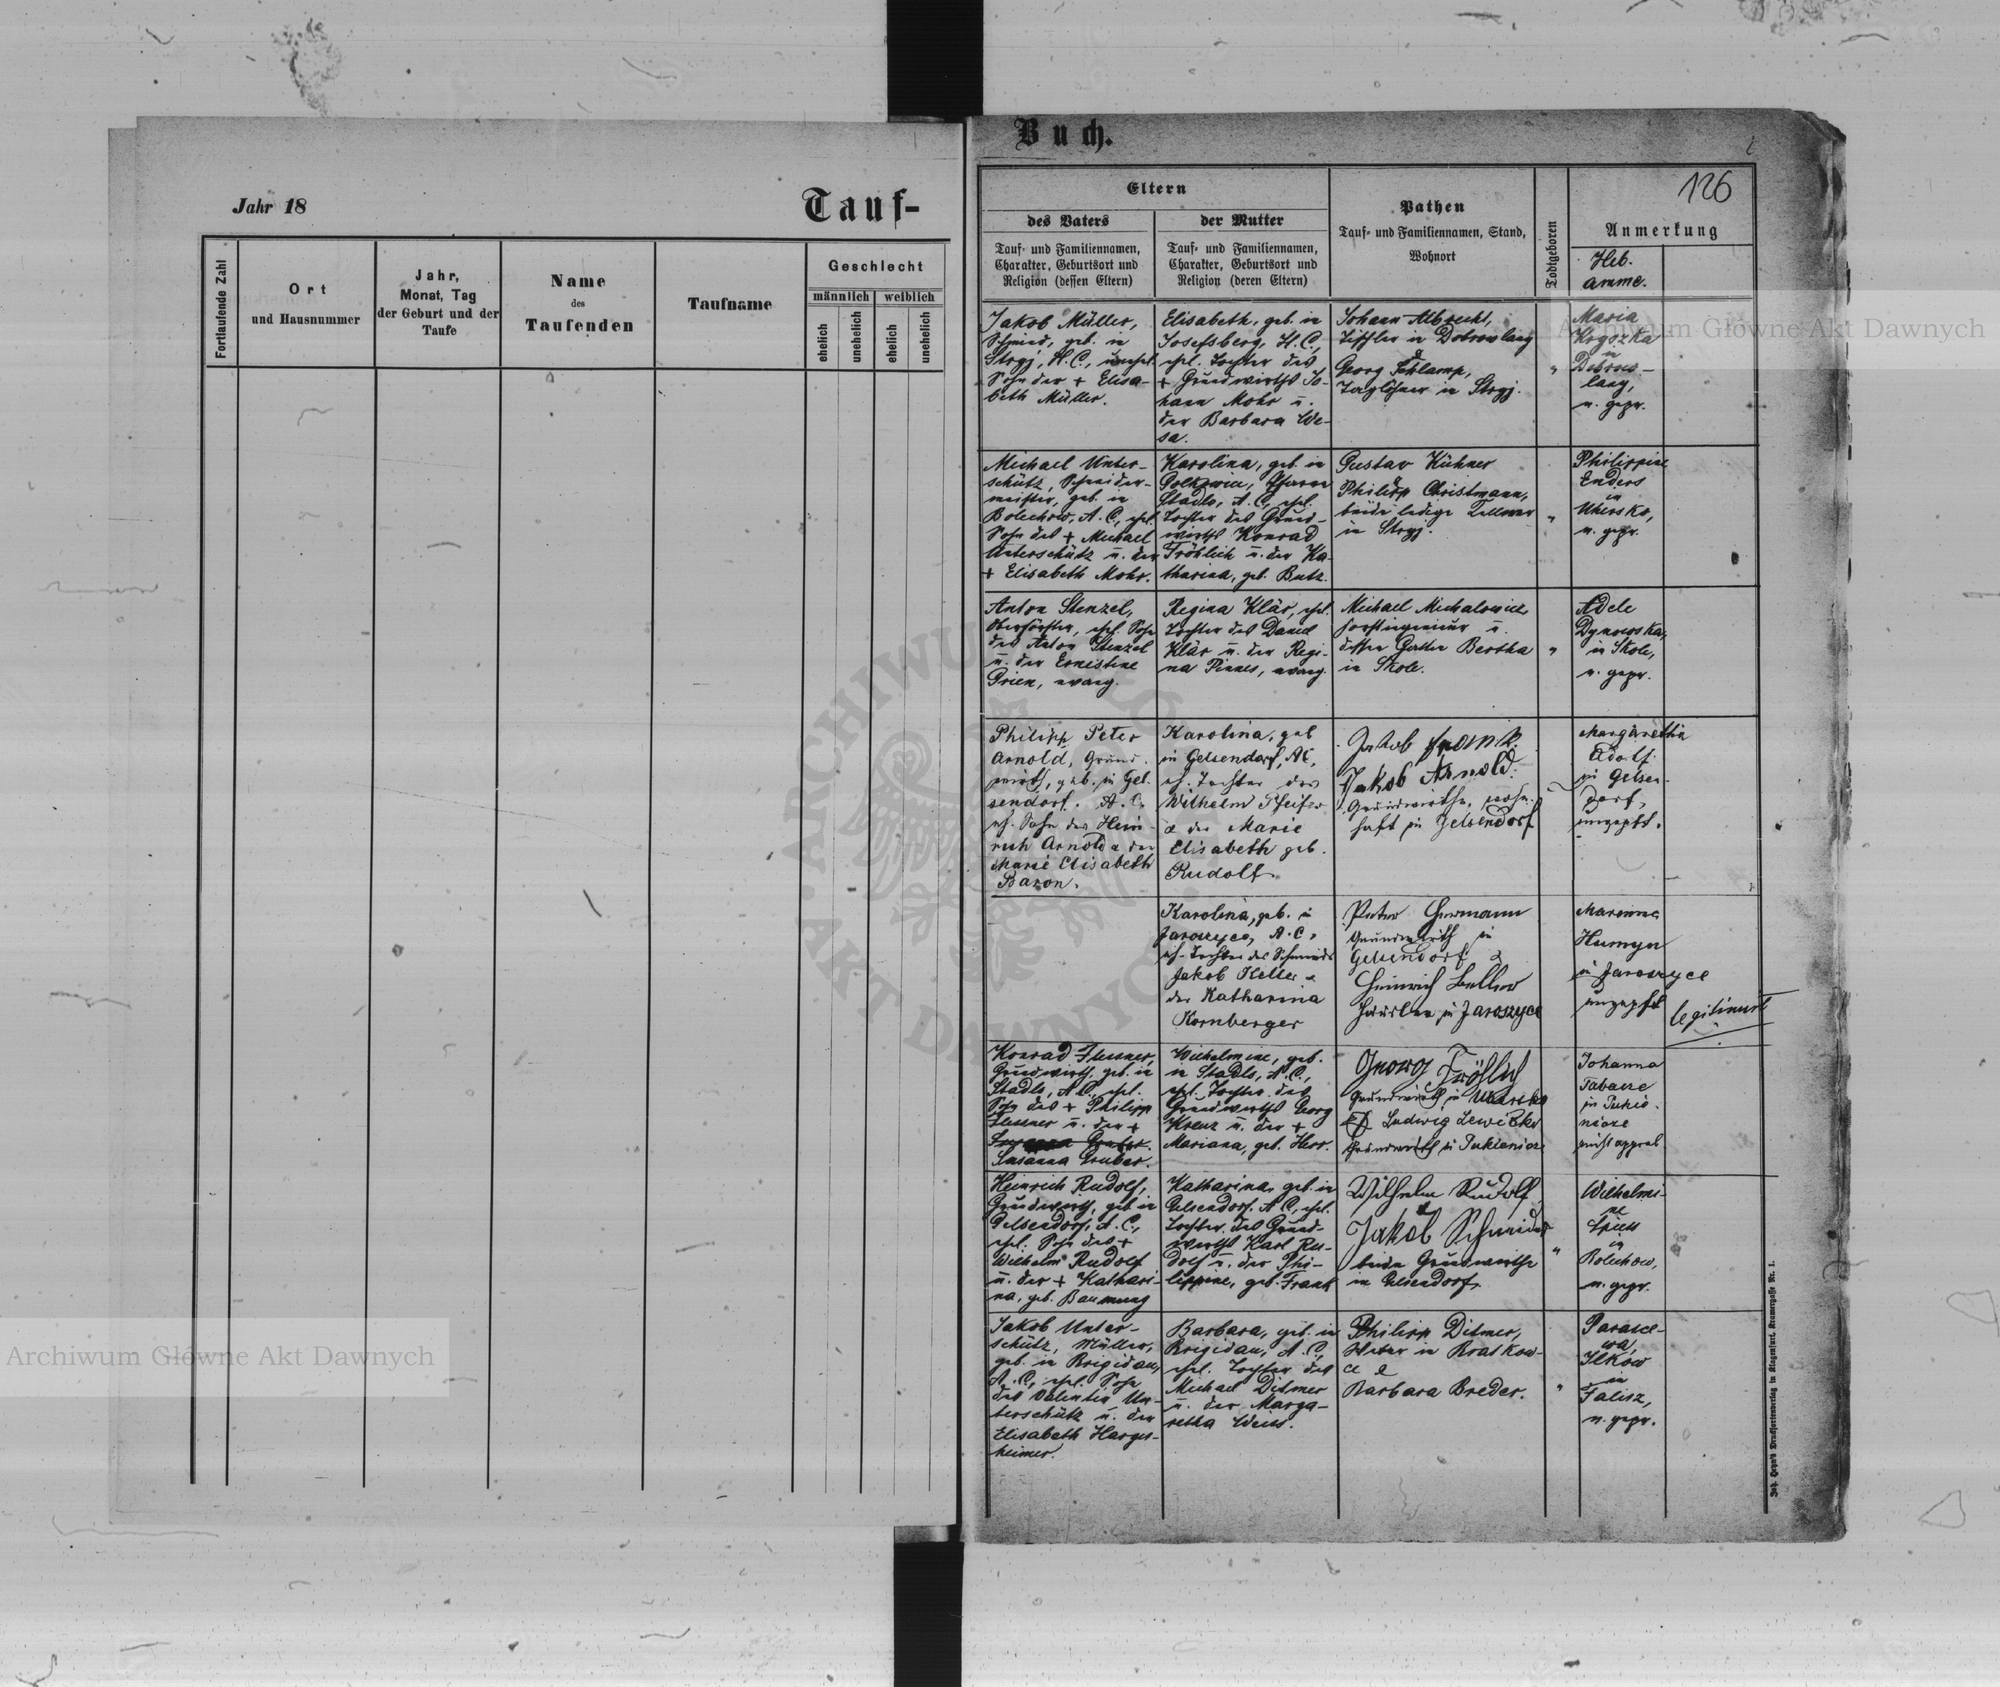 Jahr 18
Tauf-
Fortlaufende Zahl
Ort
und Hausnummer
Jahr,
Monat, Tag
der Geburt und der
Taufe
Name
des
Taufenden
Taufname
Geschlecht
männlich
weiblich
ehelich
unehelich
ehelich
unehelich
Buch.
126
Eltern
des Vaters
Tauf- und Familiennamen,
Charakter, Geburtsort und
Religion (dessen Eltern)
der Mutter
Tauf- und Familiennamen,
Charakter, Geburtsort und
Religion (deren Eltern)
Pathen
Tauf- und Familiennamen, Stand,
Wohnort
Todtgeboren
Anmerkung
Heb.
amme.
Jakob Müller,
Schmied, geb. in
Stryj, H. C., unehel.
Sohn der + Elisa-
beth Müller.
Elisabeth, geb. in
Josefsberg, H. C.,
ehel. Tochter des
+ Grundwirths Jo-
hann Mohr u.
der Barbara We-
sa.
Johann Albrecht,
in Dobrowlany
Georg Schlamp,
Taglöhner in Stryj.
"
Maria
in
Dobrow-
lany,
n. gepr.
Michael Unter-
schütz, Schneider-
meister, geb. in
Bolechow, A. C., ehel.
Sohn des + Michael
Unterschütz u. der
+ Elisabeth Mohr.
Karolina, geb. in
Golkowice, Pfarre
Stadlo, A. C., ehel.
Tochter des Grund-
wirths Konrad
Fröhlich u. der Ka-
tharina, geb. Butz.
Gustav Kühner
&
Philipp Christmann,
beide ledige
in Stryj.
"
Philippine
Enders
in
Uhersko,
n. gepr.
Anton Stenzel,
Oberförster, ehel. Sohn
des Anton Stenzel
u. der Ernestine
Grien, evang.
Regina Klär, ehel.
Tochter des Daniel
Klär u. der Regi-
na Pinnes, evang.
Michael Michalowicz
Forstingenieur u.
dessen Gattin Bertha
in Skole.
"
Adele
Dynowska,
in Skole,
n. gepr.
Philipp Peter
Arnold, Grund-
wirth, geb. in Gel-
sendorf. A. C.
eh. Sohn des Hein-
rich Arnold u. der
Marie Elisabeth
Baron.
Karolina, geb
in Gelsendorf, AC,
eh. Tochter des
Wilhelm Pfeifer
& der Marie
Elisabeth geb.
Rudolf
Jakob Frank
Jakob Arnold.
Grundwirthe, wohn-
haft in Gelsendorf
Margaretha
Adolf
in Gelsen-
dorf,
ungeprft.
Karolina, geb. in
Jaroszyce, A. C.,
eh. Tochter des Schmieds
Jakob Keller &
der Katharina
Kornberger
Peter Hermann
Grundwirth in
Gelsendorf &
Heinrich Keller
in Jaroszyce
Marianna
Humyn
in Jaroszyce
ungeprft
legitimirt
Konrad Flessner,
Grundwirth, geb. in
Stadlo, A. C., ehel.
Sohn des + Philipp
Flessner u. der +
Susanna Gruber.
Susanna Gruber.
Wilhelmine, geb.
in Stadlo, A. C.,
ehel. Tochter des
Grundwirths Georg
Kreuz u. der +
Mariana, geb. Herr.
Georg Fröhlich
Grundwirth in Uhersko
Ludwig Lewicki
Grundwirth in Pukienicze
Johanna
in Pukie-
nicze
nicht
Heinrich Rudolf,
Grundwirth, geb. in
Gelsendorf, A. C.,
ehel. Sohn des +
Wilhelm Rudolf
u. der + Kathari-
na, geb. Baumung
Katharina, geb. in
Gelsendorf, A C, ehel.
Tochter des Grund-
wirths Karl Ru-
dolf u. der Phi-
lippine, geb. Frank
Wilhelm Rudolf
&
Jakob Schneider
beide Grundwirthe
in Gelsendorf
"
Wilhelmi-
ne
Spiess
in
Bolechow,
n. gepr.
Jakob Unter-
schütz, Müller,
geb. in Brigidau,
A. C., ehel. Sohn
des Valentin Un-
terschütz u. der
Elisabeth Harges-
heimer.
Barbara, geb. in
Brigidau, A. C.,
ehel. Tochter des
Michael Ditmer
u. der Marga-
retha Weiss.
Philipp Ditmer,
in Braskow-
ce &
Barbara Breder.
"
Parasce-
wa,
Ilkow
in
Falisz,
n. gepr.
Joh. Heyn's Drucksortenverlag in Klagenfurt, Kramergasse Nr. 1.
Archiwum Główne Akt Dawnych
Archiwum Główne Akt Dawnych
ARCHIWUM GŁÓWNE AKT DAWNYCH